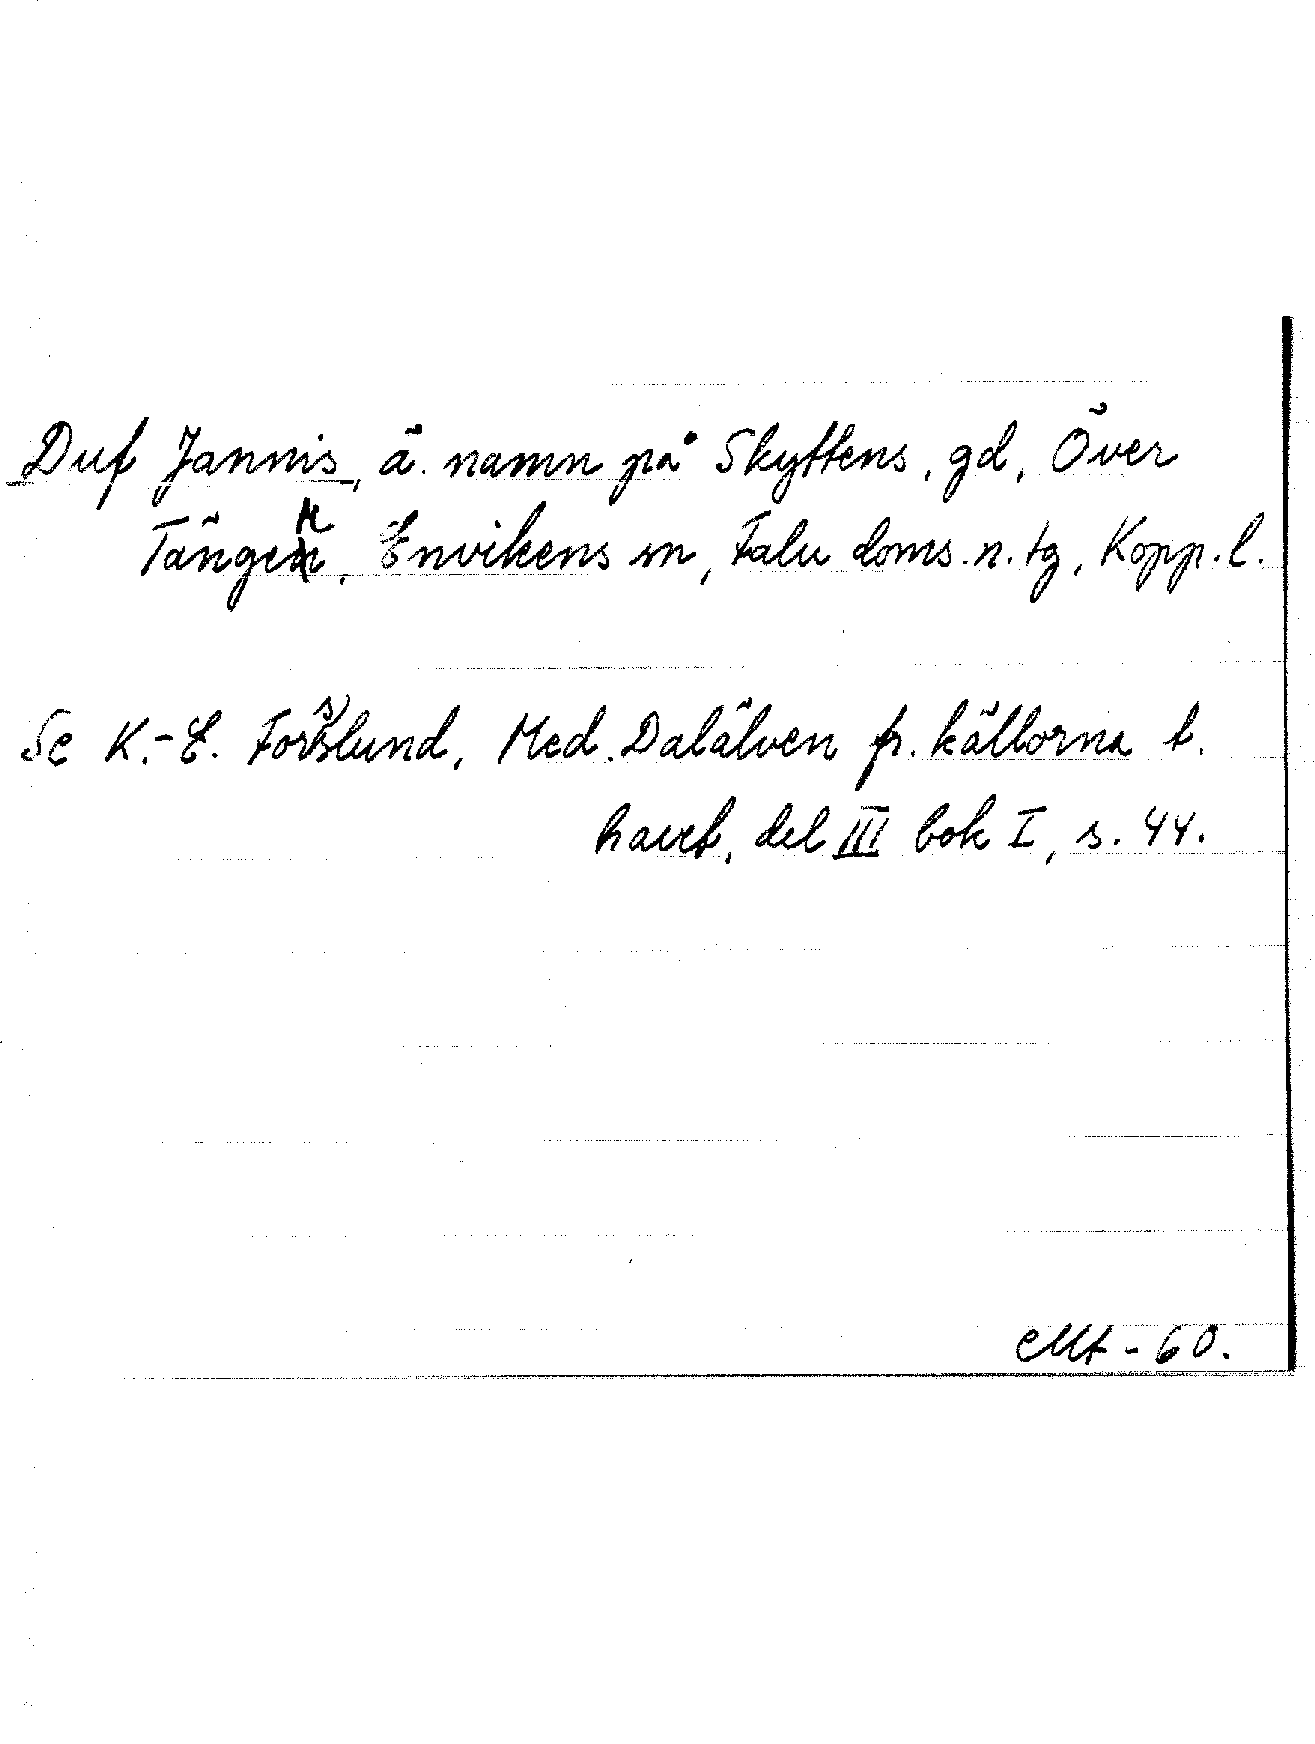 Duf Jannis, ä. namn på Skyttens, gd, Över
Tänger, Envikens sn, Falu doms. n. tg, Kopp. l.
Se K.-E. Forsslund, Med Dalälven fr. källorna t.
havet, del III bok I, s. 44.
-60.